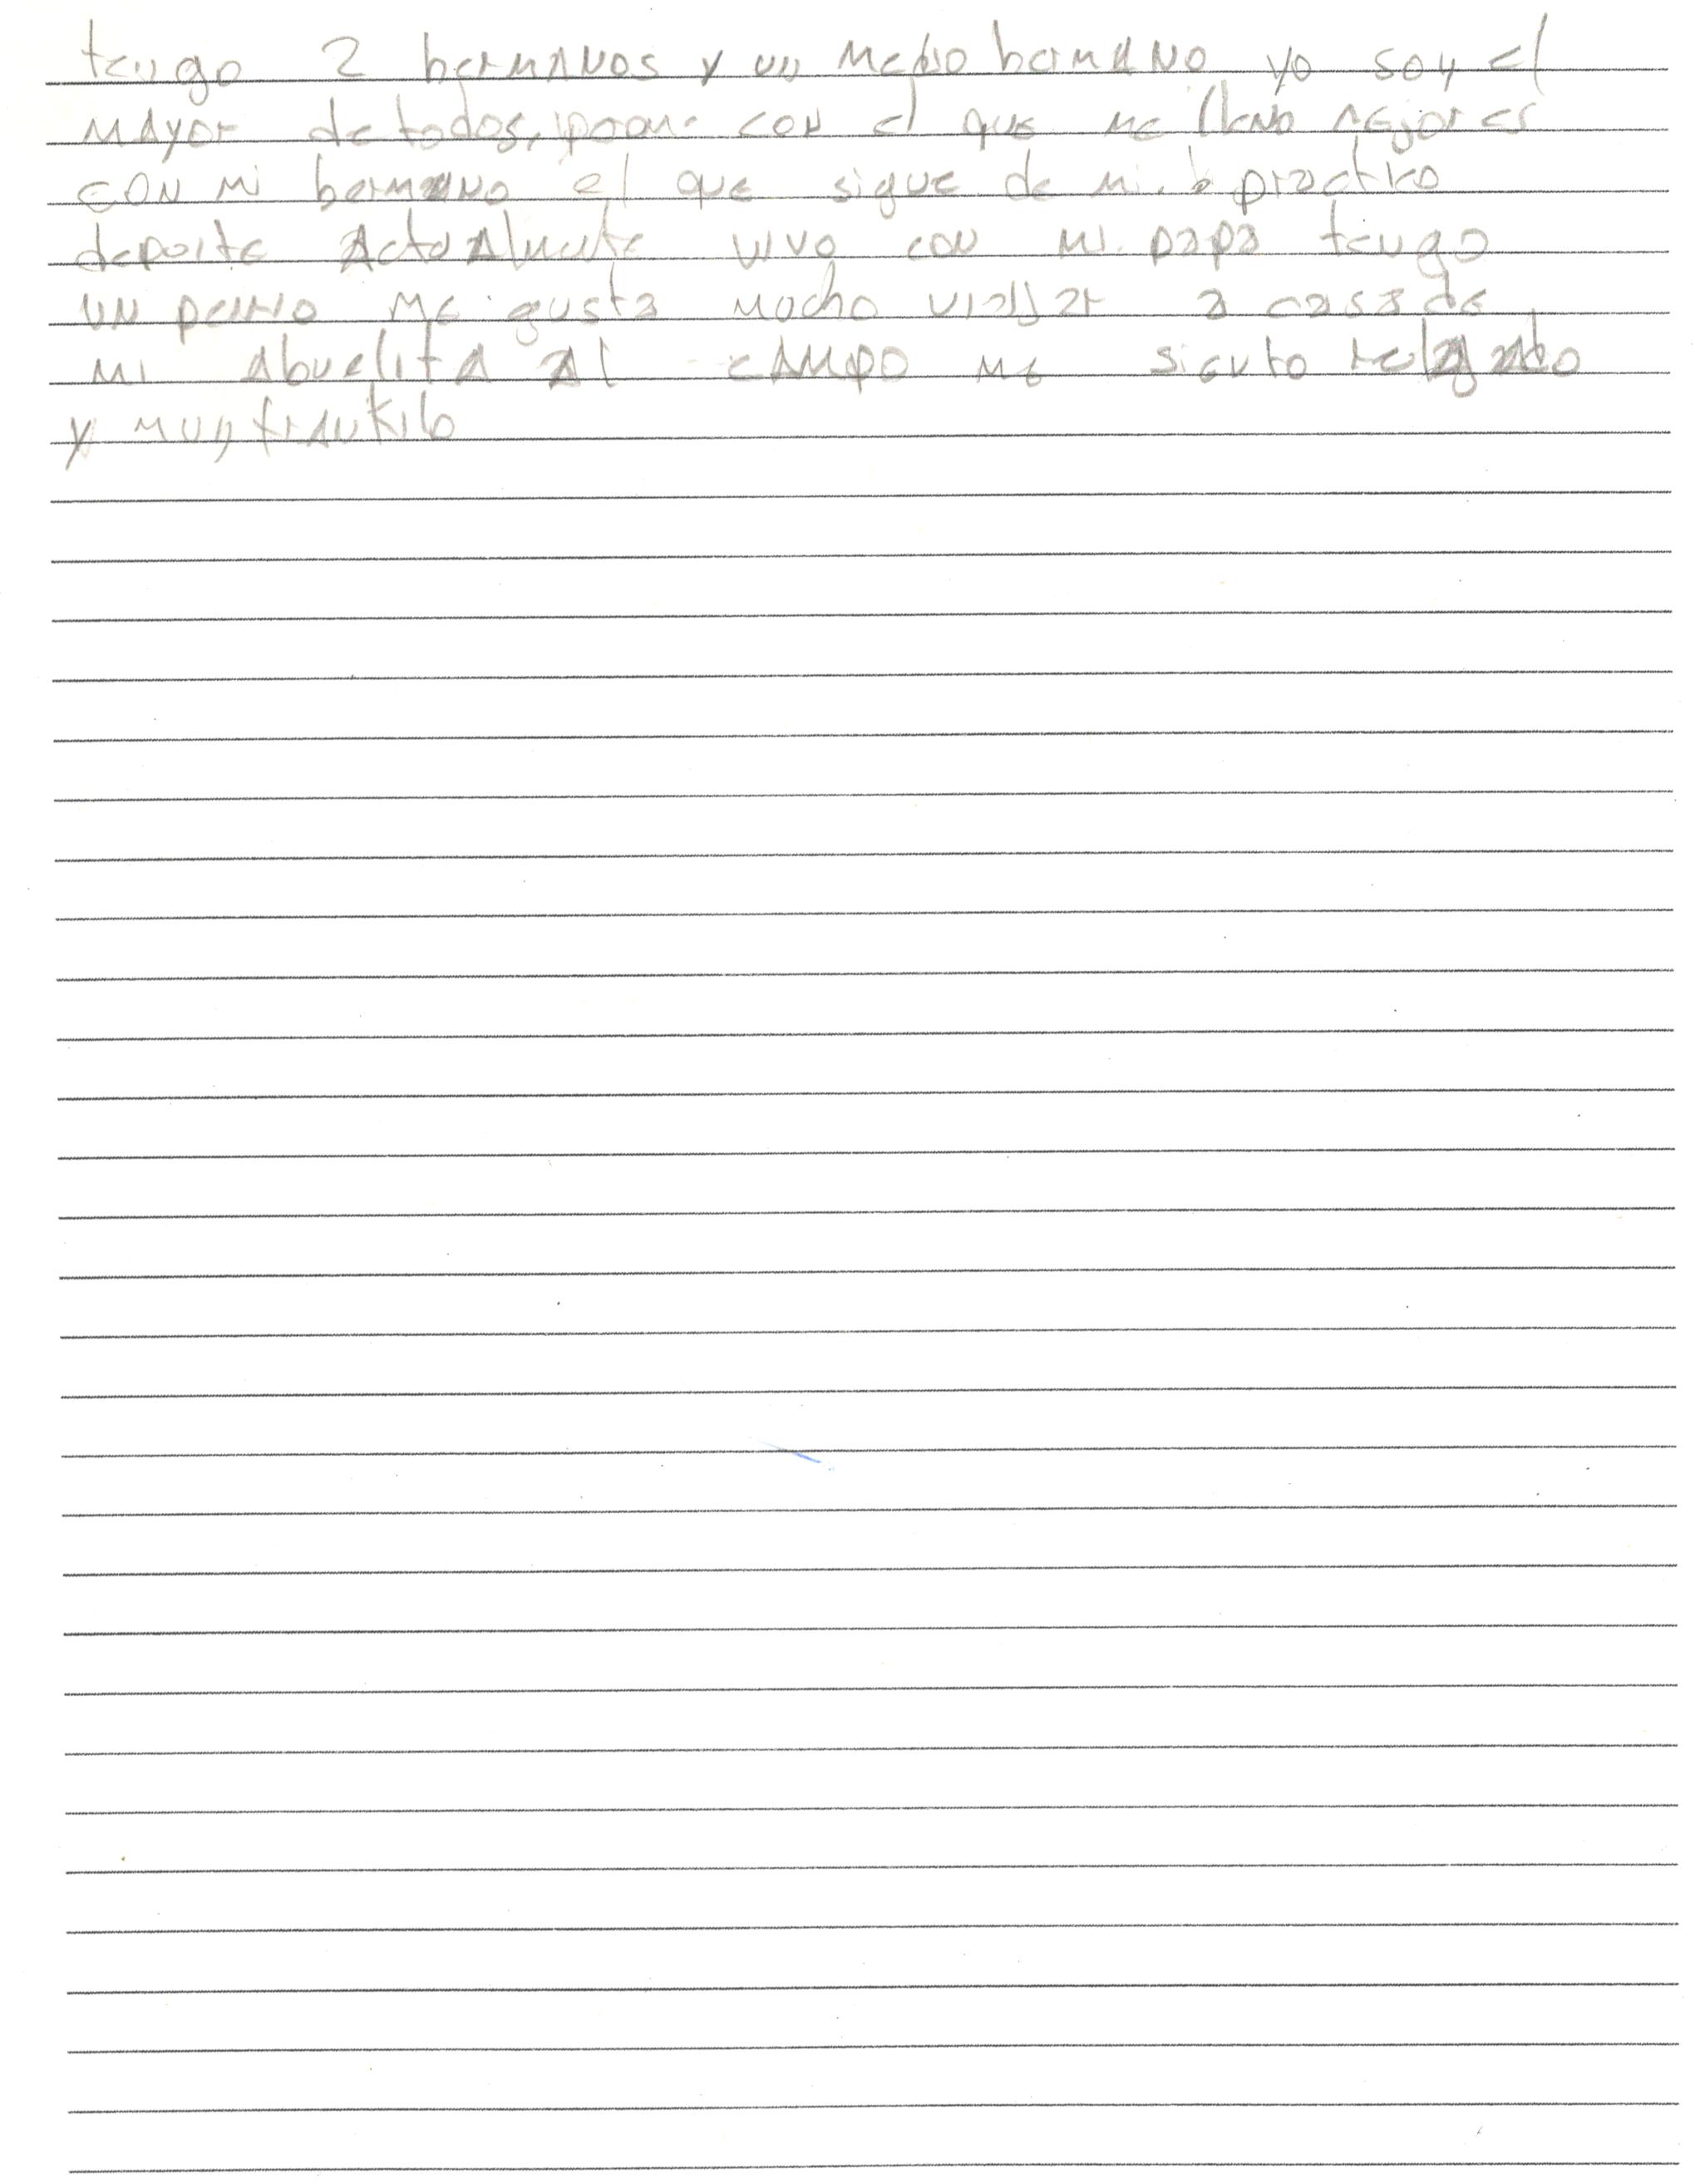 tengo 2 hermanos y un medio hermano yo soy el
mayor de todos, con el que me llevo mejor es
con mi hermano el que sigue de mi. practico
deporte Actualmente vivo con mi papa tengo
un perro me gusta mucho viajar a casa de
mi abuelita al campo me siento relajado
y muy trankilo